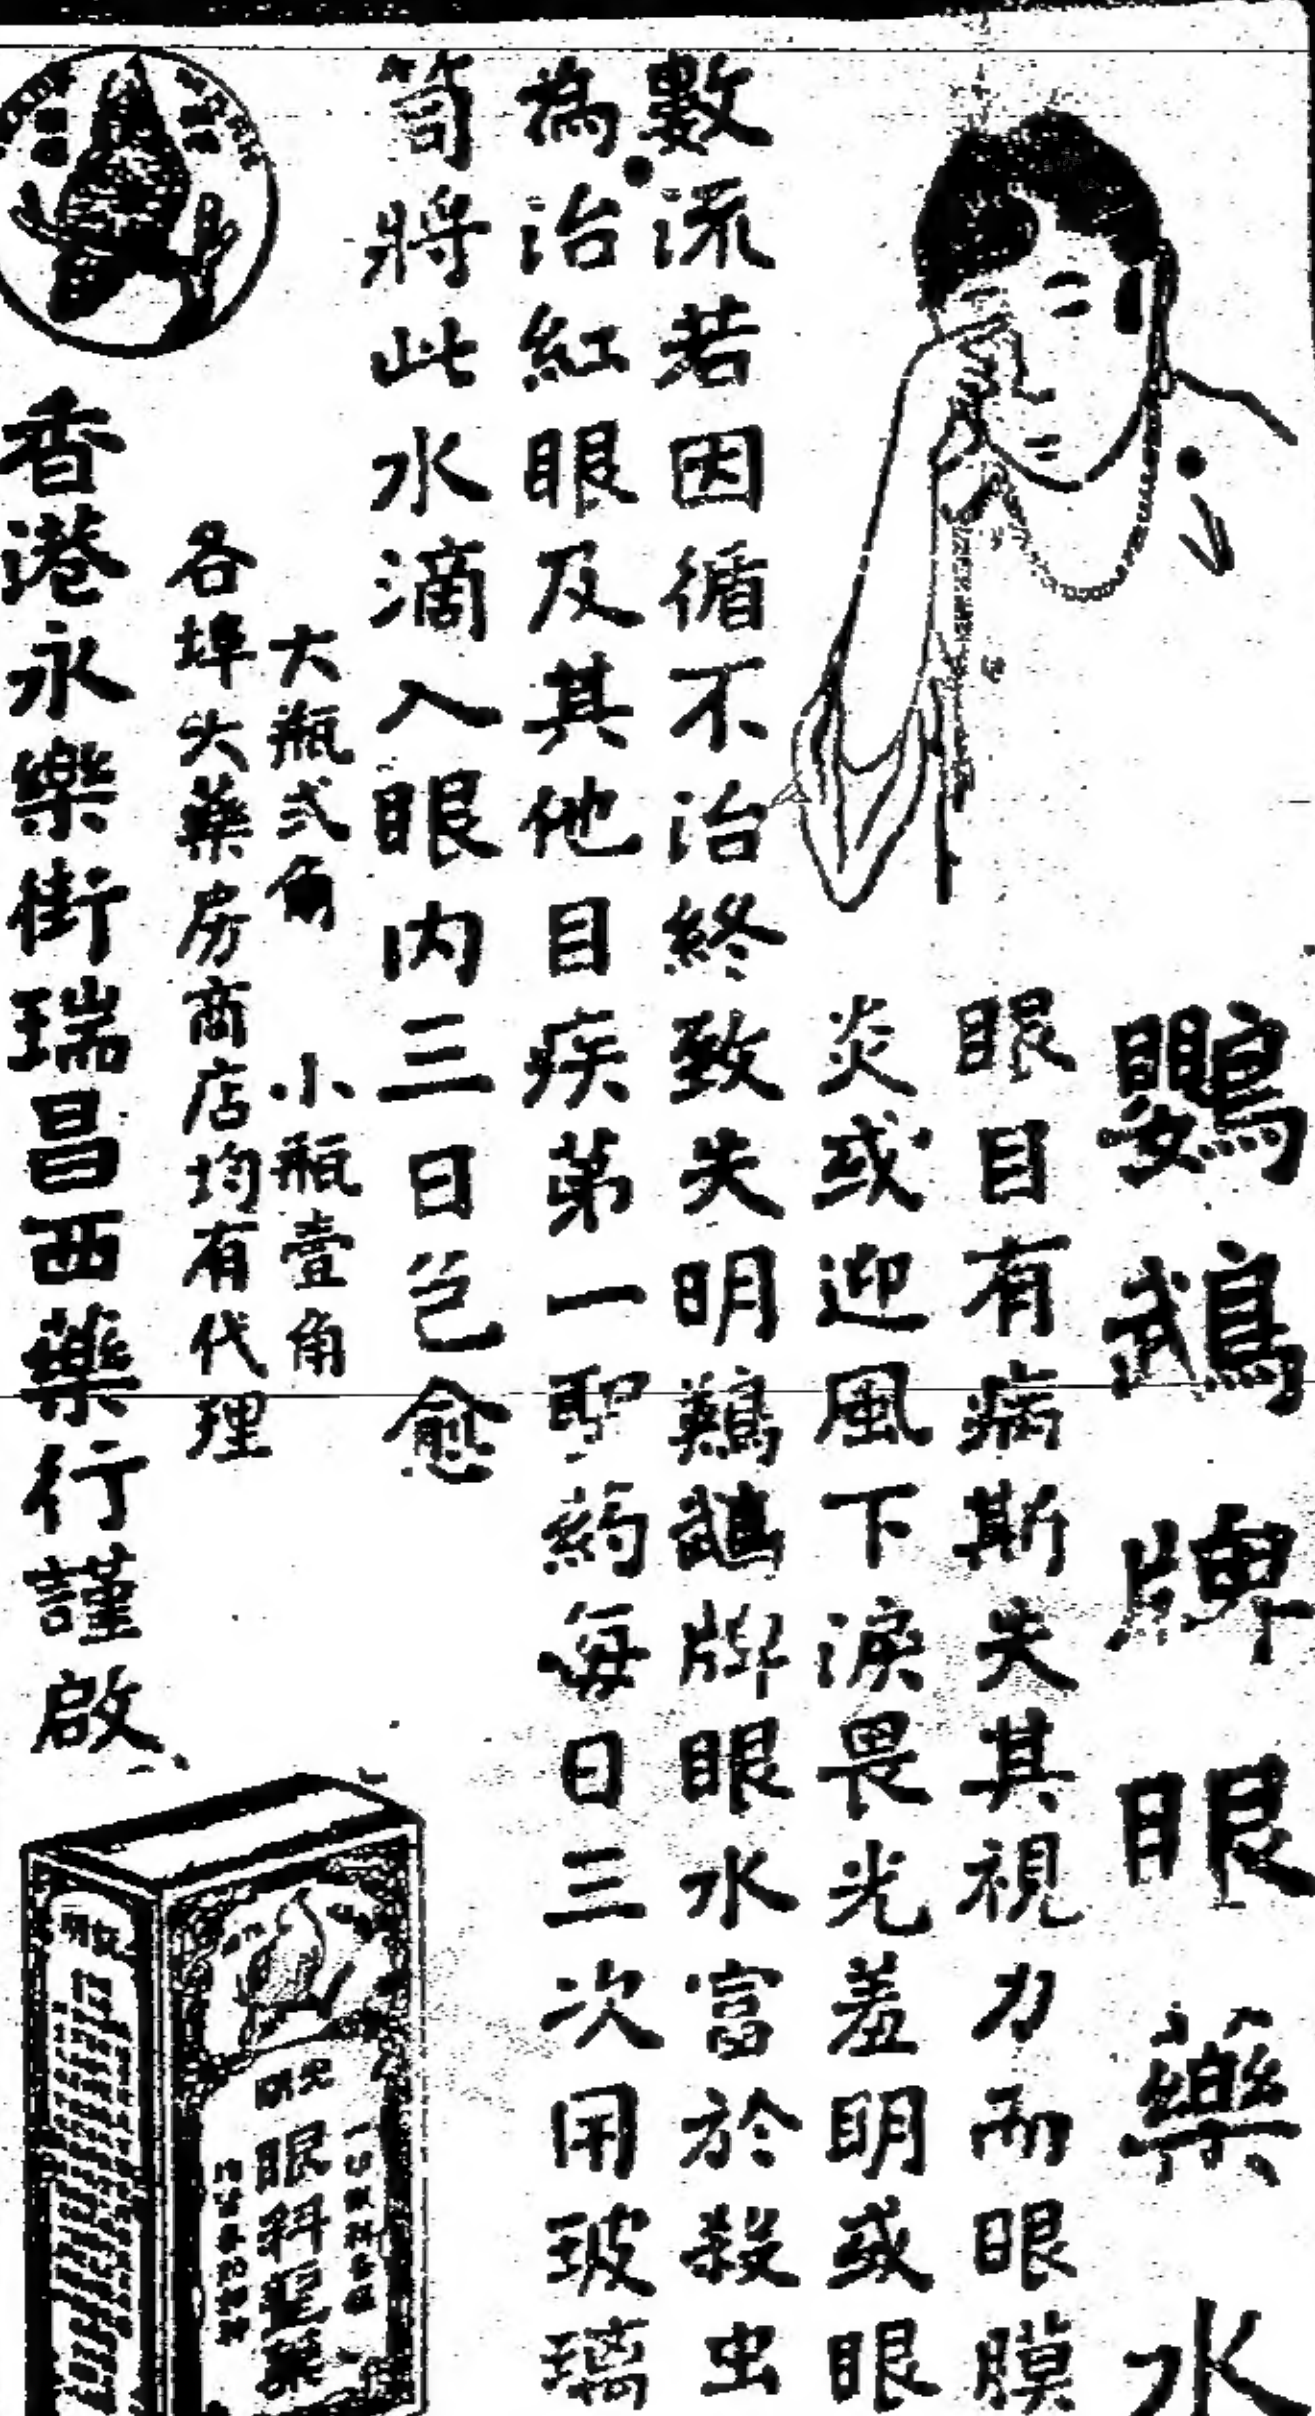 鸚鵡牌眼藥水
眼目有病斯失其視力而眼膜
炎或迎風下淚畏光羞明或眼
數流若因循不治終致失明鸚鵡牌眼水富於殺虫
為治紅眼及其他目疾第一聖药每日三次用玻璃
筒將此水滴入眼内三日包愈
大瓶弍角 小瓶壹角
各埠大藥房商店均有代理
香港永樂街瑞昌西藥行謹啟
眼科聖藥